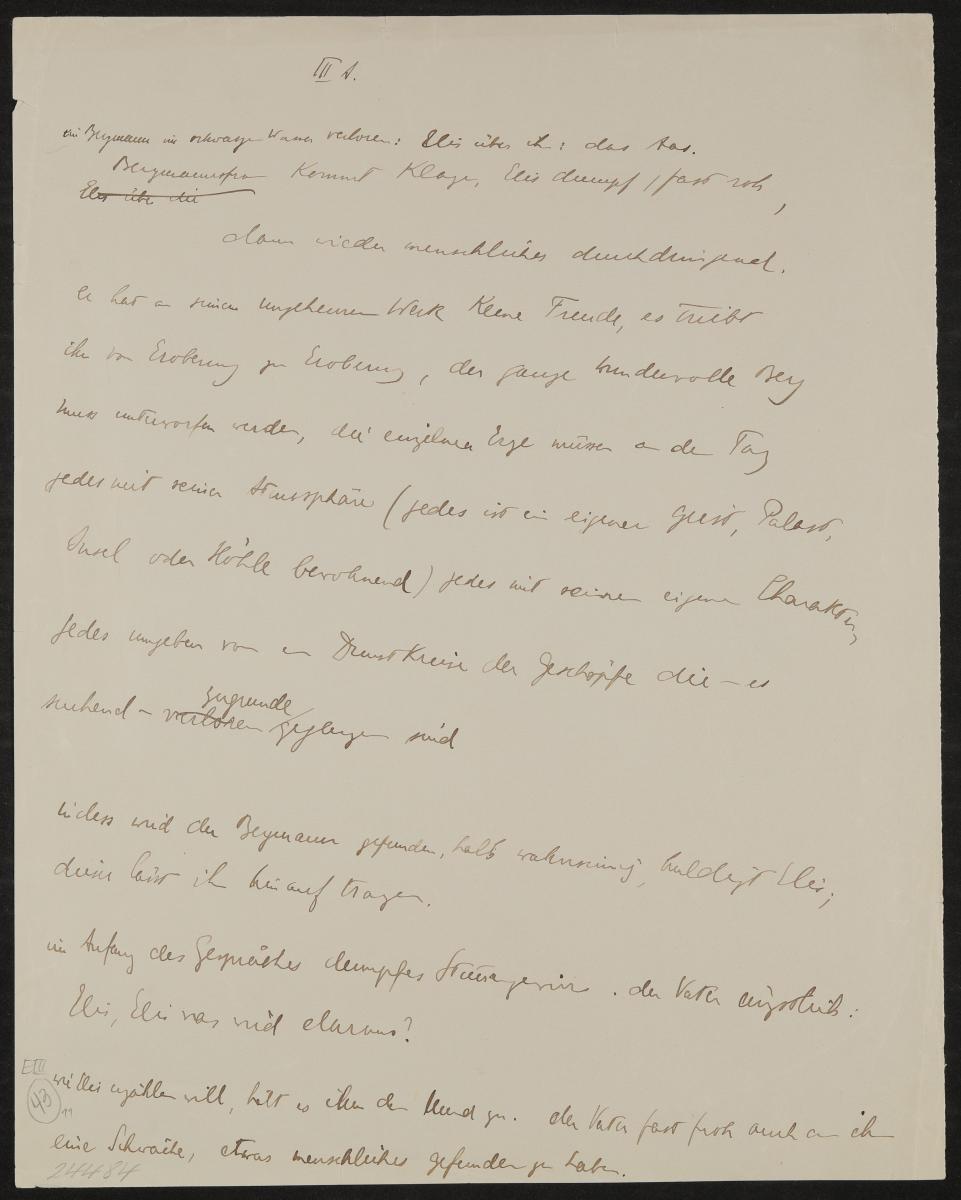 III A.
ein Bergmann im schwarzen Wasser verloren: Elis über ihn: das Aas.
Bergmannsfrau Kommt Klage, Elis dumpf, fast roh,
Elis über die
dann wieder menschliches durchdringend.
er hat an seinem ungeheuren Werk Keine Freude, es treibt
ihn von Eroberung zu Eroberung, der ganze wundervolle Berg
muss unterworfen werden, die einzelnen Erze müssen an den Tag
jedes mit seiner Atmosphäre (jedes ist ein eigener Geist, Palast,
Insel oder Höhle bewohnend) jedes mit seinem eigenen
jedes umgeben von en DunstKreise der Geschöpfe die – es
zugrunde
suchend – verloren gegangen sind
indess wird der Bergmann gefunden, halb wahnsinnig, huldigt Elis;
dieser lässt ihn hinauf tragen.
im Anfang des Gespräches dumpfes. der Vater ängstlich:
Elis, Elis was wird daraus?
wie Elis erzählen will, hält es ihm den Mund zu. der Vater fast froh auch an ihm
eine Schwäche, etwas menschliches gefunden zu haben.
EIII
43
24484